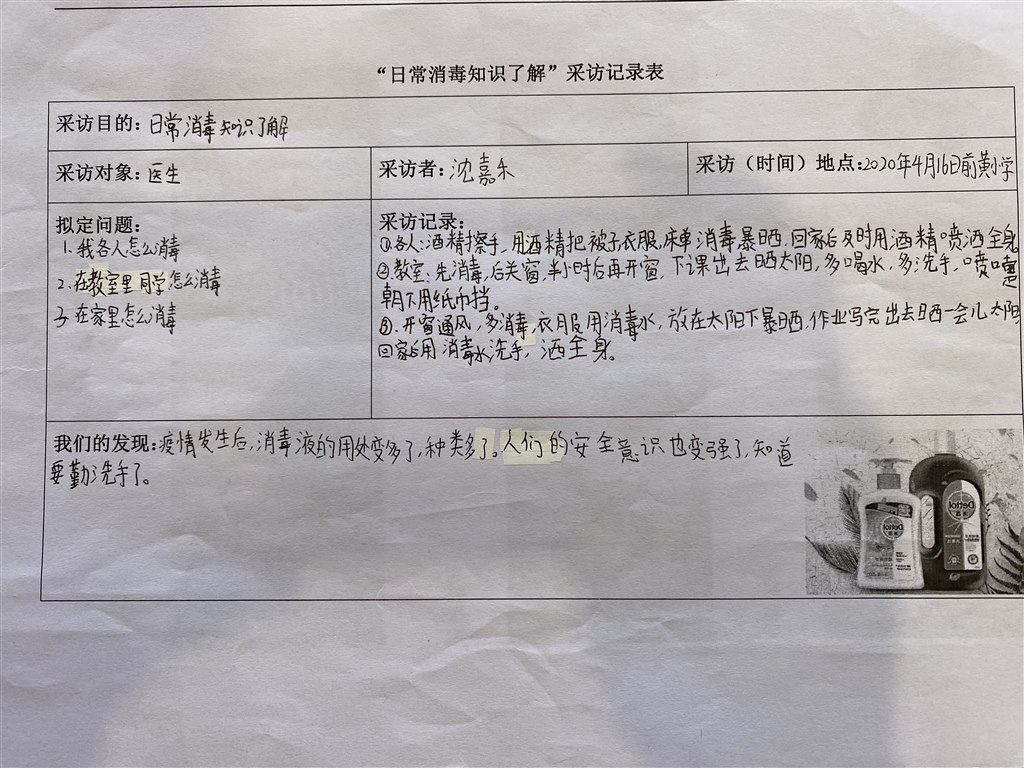 “日常消毒知识了解”采访记录表
采访目的：日常消毒知识了解
采访对象：医生
采访者：沈嘉禾
采访（时间）地点:2020年4月16日前黄小学
拟定问题：
1.我各人怎么消毒
2.在教室里同学怎么消毒
3.在家里怎么消毒
采访记录：
①各人:酒精擦手,用酒精把被子衣服,床单消毒暴晒,回家后及时用酒精喷洒全身
②教室:先消毒,后关窗,半小时后再开窗,下课出去晒太阳,多喝水,多洗手,喷嚏
朝下用纸巾挡。
③.开窗通风,多消毒,衣服用消毒水,放在太阳下暴晒.作业写完出去晒一会儿太阳
回家后用消毒水洗手,洒全身。
我们的发现:疫情发生后,消毒液的用处变多了,种类多了。人们的安全意识也变强了,知道
要勤洗手了。
Dettol
Dettol